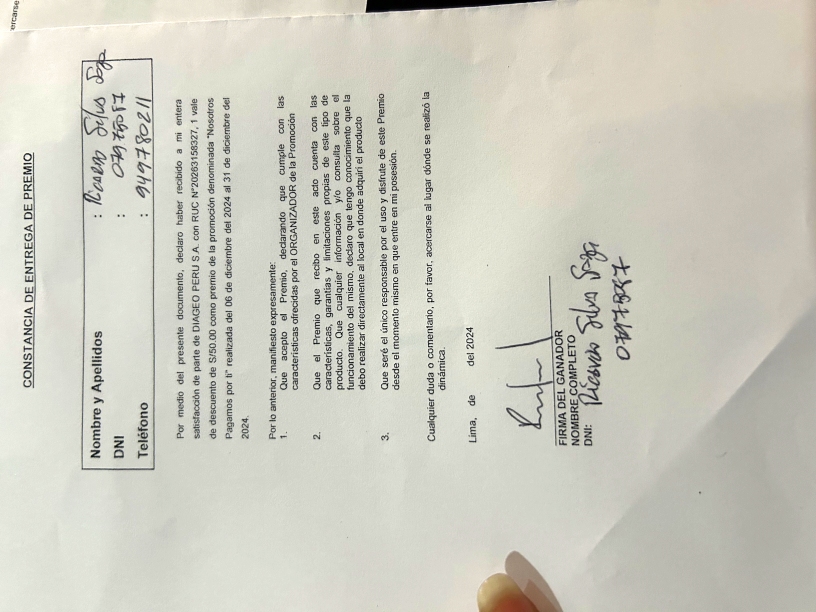 ercarse
CONSTANCIA DE ENTREGA DE PREMIO
Nombre y Apellidos : Ricardo Silva
DNI : 07975057
Teléfono : 949780211
Por medio del presente documento, declaro haber recibido a mi entera
satisfacción de parte de DIAGEO PERU S A. con RUC N°20263158327, 1 vale
de descuento de S/50.00 como premio de la promoción denominada "Nosotros
Pagamos por ti" realizada del 06 de diciembre del 2024 al 31 de diciembre del
2024.
Por lo anterior, manifiesto expresamente:
1. Que acepto el Premio, declarando que cumple con las
características ofrecidas por el ORGANIZADOR de la Promoción
2. Que el Premio que recibo en este acto cuenta con las
características, garantías y limitaciones propias de este tipo de
producto. Que cualquier información y/o consulta sobre el
funcionamiento del mismo, declaro que tengo conocimiento que la
debo realizar directamente al local en donde adquirí el producto
3. Que seré el único responsable por el uso y disfrute de este Premio
desde el momento mismo en que entre en mi posesión.
Cualquier duda o comentario, por favor, acercarse al lugar dónde se realizó la
dinámica.
Lima, de del 2024
FIRMA DEL GANADOR
NOMBRE COMPLETO
DNI: Ricardo Silva